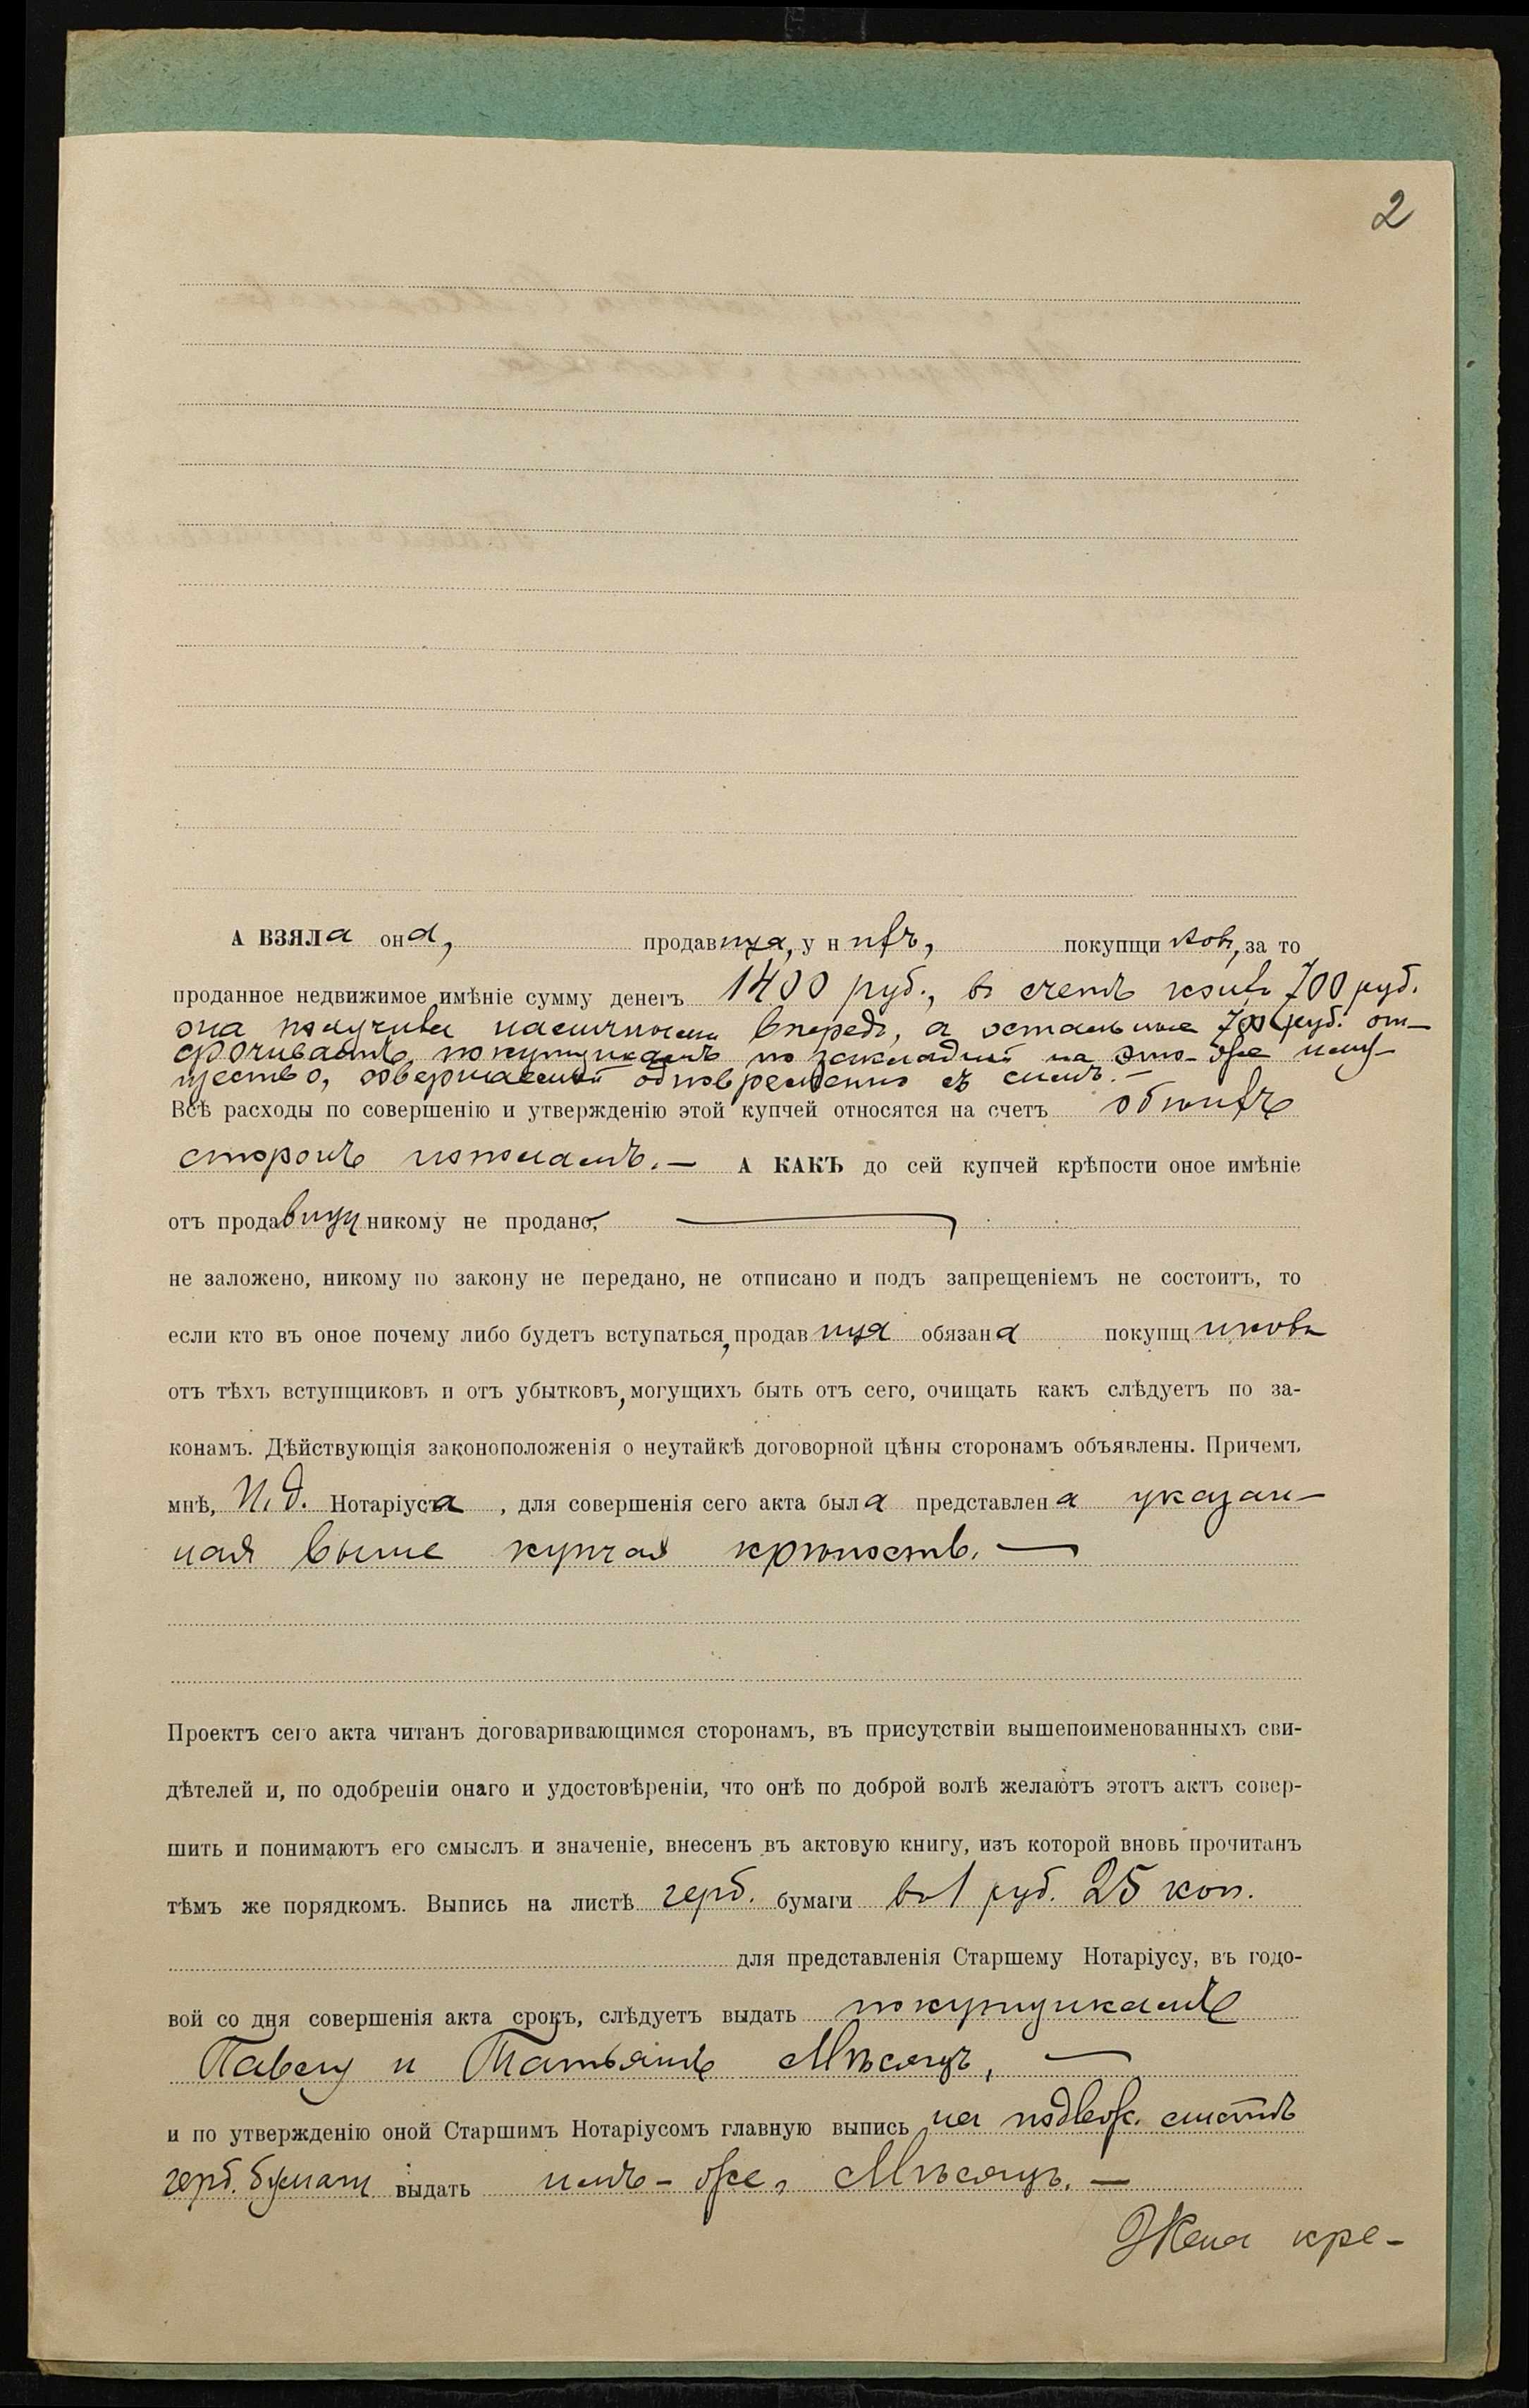 2
А ВЗЯЛа она, продавица, у нихъ, покупщиковъ, за то
проданное недвижимое имѣніе сумму денегъ 1400 руб., въ счетъ коихъ 700 руб.
она получила наличными впередъ, а остальные 700 руб. от-
срочиваетъ покупщикамъ по закладной на это-же иму-
щество, совершаемой одновременно съ симъ.—
Всѣ расходы по совершенію и утвержденію этой купчей относятся на счетъ обѣихъ
сторонъ пополамъ.— А КАКЪ до сей купчей крѣпости оное имѣніе
отъ продавицы никому не продано,
не заложено, никому по закону не передано, не отписано и подъ запрещеніемъ не состоитъ, то
если кто въ оное почему либо будетъ вступаться, продавица обязана покупщиковъ
отъ тѣхъ вступщиковъ и отъ убытковъ, могущихъ быть отъ сего, очищать какъ слѣдуетъ по за-
конамъ. Дѣйствующія законоположенія о неутайкѣ договорной цѣны сторонамъ объявлены. Причемъ
мнѣ, И. д. Нотаріуса, для совершенія сего акта была представлена указан-
ная выше купчая крѣпость.—
Проектъ сего акта читанъ договаривающимся сторонамъ, въ присутствіи вышепоименованныхъ сви-
дѣтелей и, по одобреніи онаго и удостовѣреніи, что онѣ по доброй волѣ желаютъ этотъ актъ совер-
шить и понимаютъ его смыслъ и значеніе, внесенъ въ актовую книгу, изъ которой вновь прочитанъ
тѣмъ же порядкомъ. Выпись на листѣ герб. бумаги въ 1 руб. 25 коп.
для представленія Старшему Нотаріусу, въ годо-
вой со дня совершенія акта срокъ, слѣдуетъ выдать покупщикамъ
Павлу и Татьянѣ Мѣсяцъ, —
и по утвержденію оной Старшимъ Нотаріусомъ главную выпись на листѣ
герб. бумаги выдать имъ-же, Мѣсяцъ.—
Жена кре-